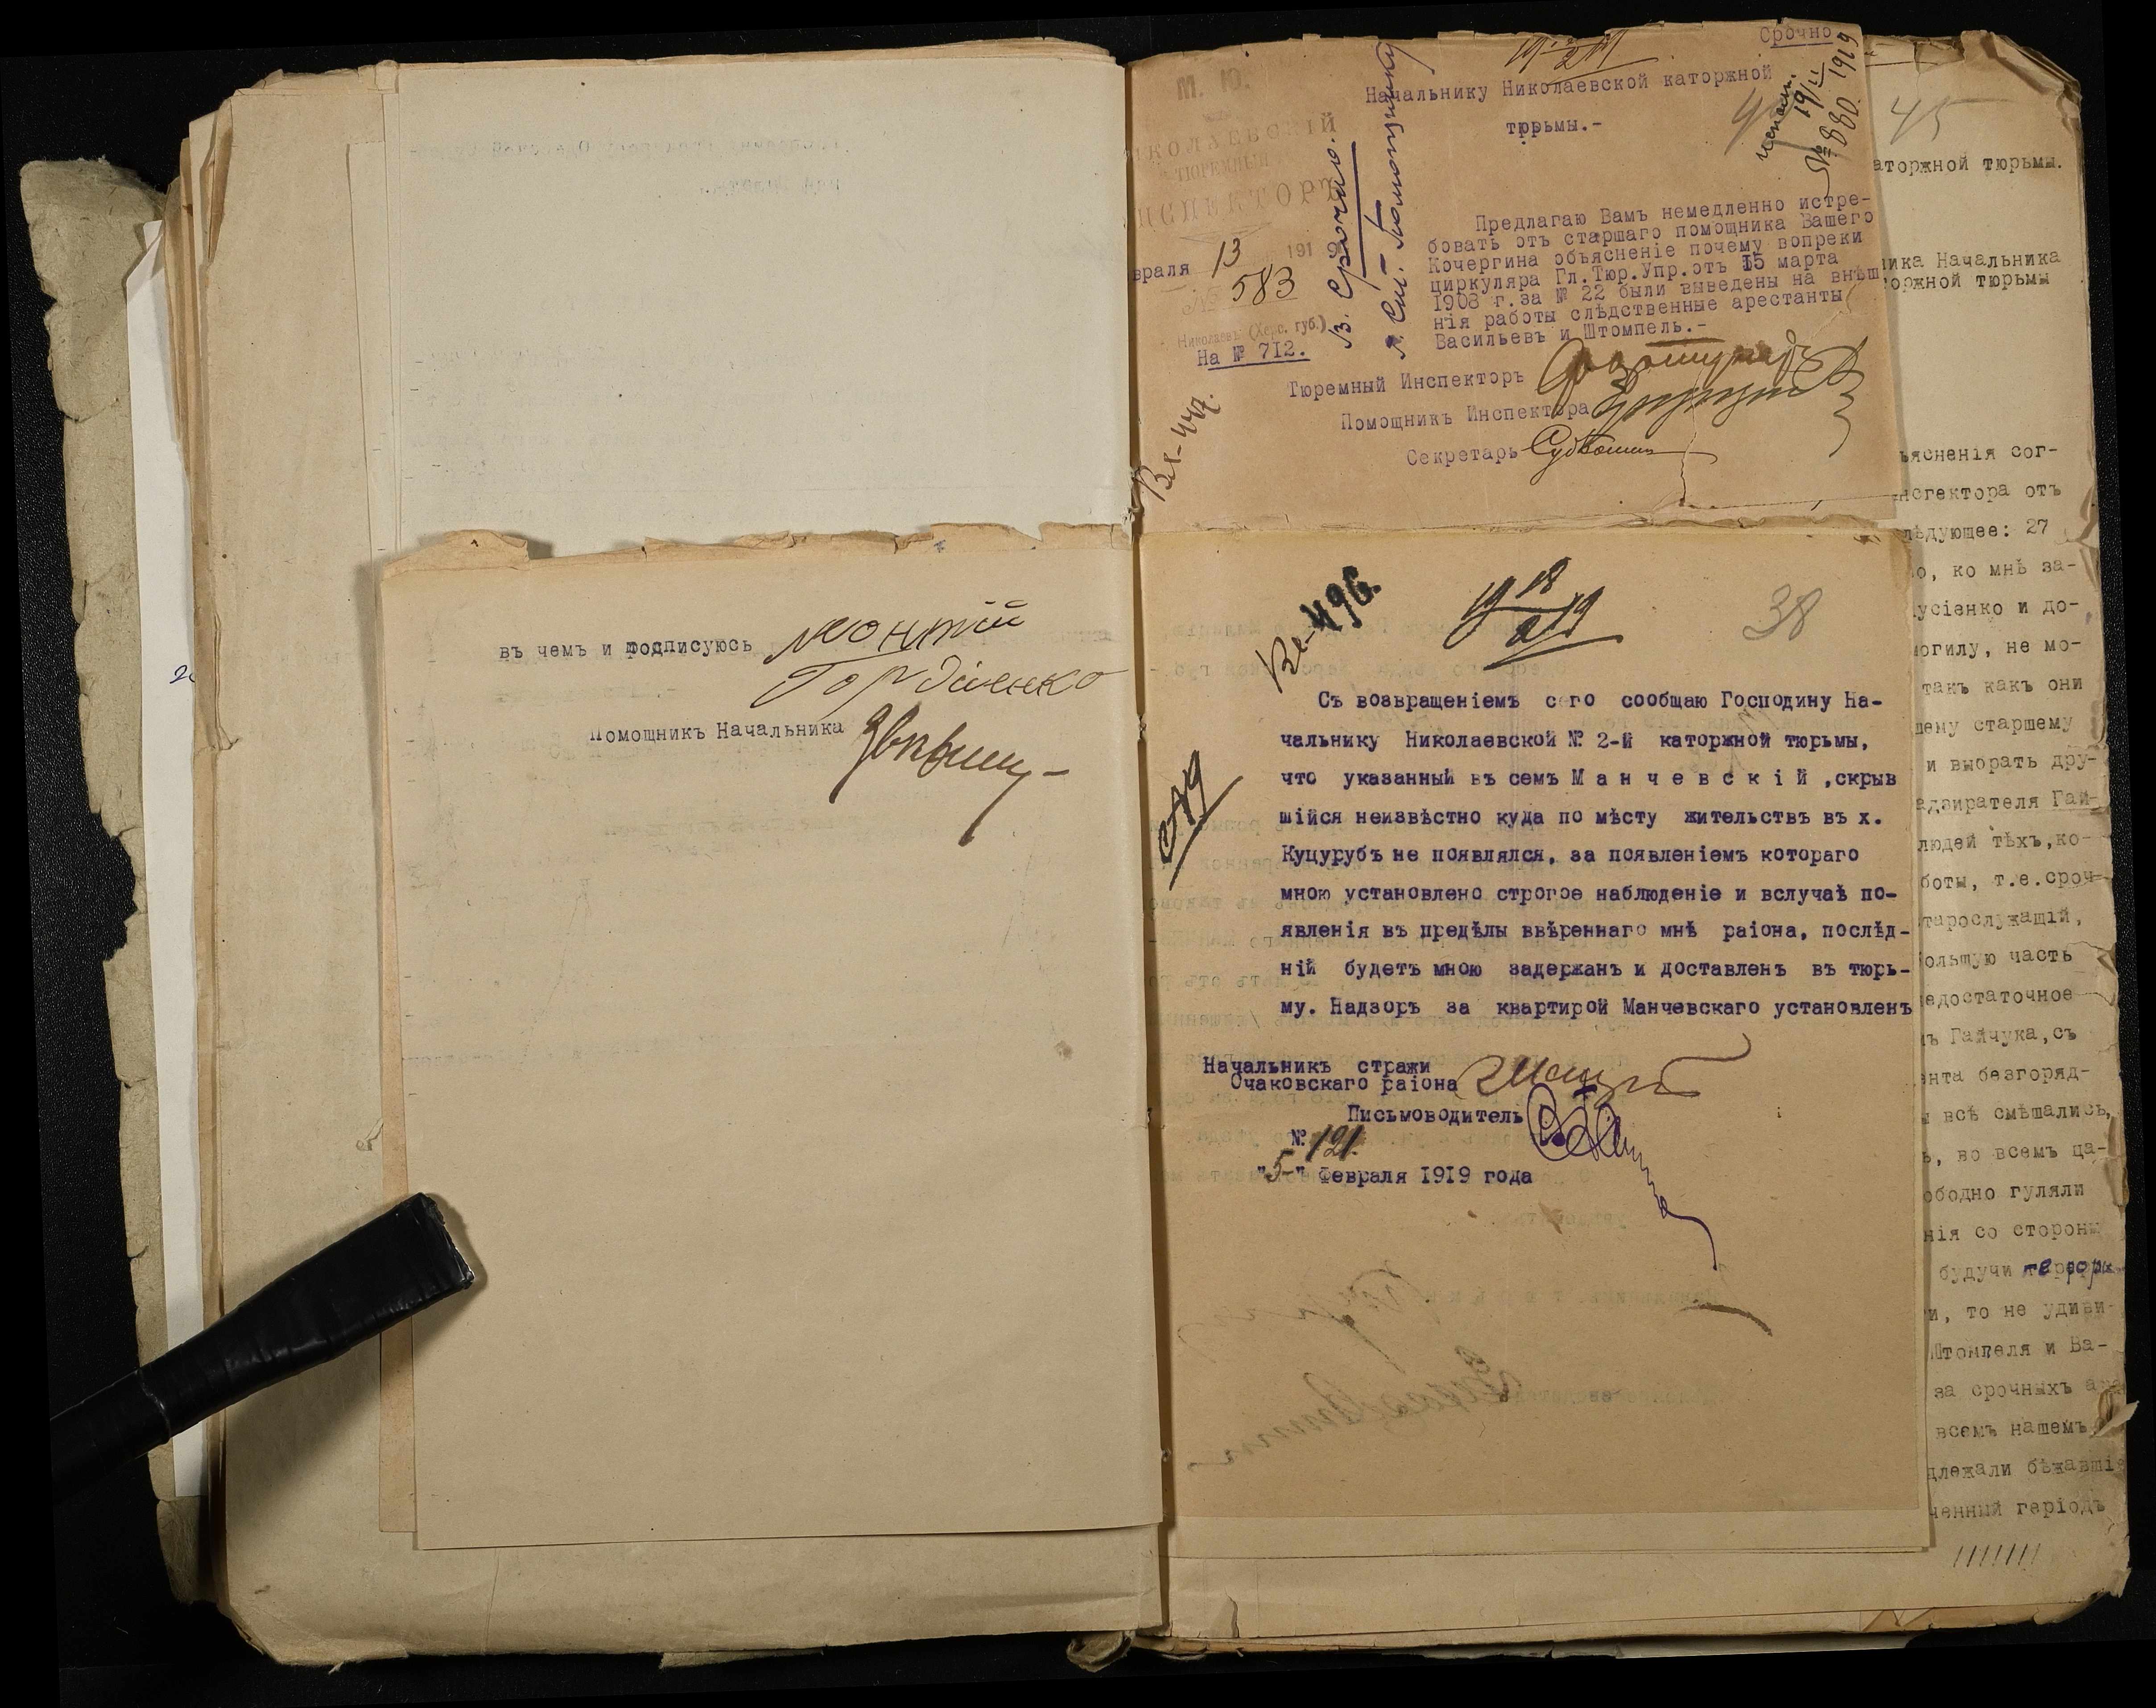 въ чемъ и подписуюсь Монтій
Гордіенко
Помощникъ Начальника
Срочно
М. Ю.
Начальнику Николаевской каторжной
тюрьмы.-
№ 880 1919
НИКОЛАЕВСКІЙ
ТЮРЕМНЫЙ
ИНСПЕКТОРЪ
враля 13 191 9
№ 583
Николаевъ (Херс. губ.)
На № 712.
В. Срочно.
Вх-447.
Предлагаю Вамъ немедленно истре-
бовать отъ старшаго помощника Вашего
Кочергина объясненіе почему вопреки
циркуляра Гл.Тюр.Упр.отъ 15 марта
1908 г.за № 22 были выведены на внѣш
нія работы слѣдственные арестанты
Васильевъ и Штомпель.-
Тюремный Инспекторъ
Помощникъ Инспектора
Секретарь
Вх-496.
38
Съ возвращеніемъ сего сообщаю Господину На-
чальнику Николаевской № 2-й каторжной тюрьмы,
что указанный въ семъ М а н ч е в с к і й ,скрыв
шійся неизвѣстно куда по мѣсту жительствъ въ х.
Куцурубъ не появлялся, за появленіемъ котораго
мною установлено строгое наблюденіе и вслучаѣ по-
явленія въ предѣлы ввѣреннаго мнѣ раіона, послѣд-
ній будетъ мною задержанъ и доставленъ въ тюрь-
му. Надзоръ за квартирой Манчевскаго установленъ
Начальникъ стражи
Очаковскаго раіона
Письмоводитель
№ 121.
"5-" Февраля 1919 года
45
аторжной тюрьмы.
ика Начальника
оржной тюрьмы
ъясненія сог-
нспектора отъ
лѣдующее: 27
о, ко мнѣ за-
усіенко и до-
могилу, не мо-
такъ какъ они
шему старшему
и выбрать дру-
адзирателя Гай-
людей тѣхъ,ко-
боты, т.е.сроч-
тарослужащій,
большую часть
недостаточное
мъ Гайчука,съ
ента безгоряд-
ы всѣ смѣшались,
ь, во всемъ ца-
ободно гуляли
нія со стороны
будучи
и, то не удиви-
Штомпеля и Ва-
за срочныхъ
всемъ нашемъ
длежали бѣжавшіе
ченный геріодъ